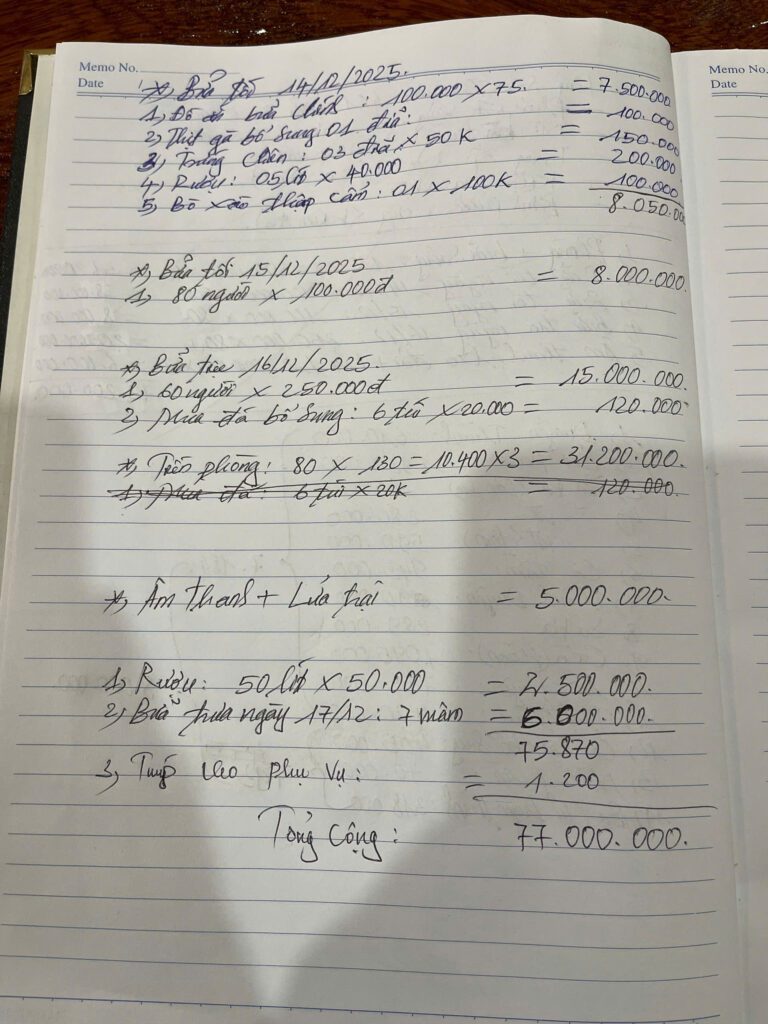 Memo No.
Date
*, Bửa tối 14/12/2025.
1, Đồ ăn bửa chính : 100.000 x 75. = 7.500.000
2) Thịt gà bổ sung 01 đĩa: = 100.000
3, Trứng chiên : 03 đĩa x 50K = 150.000
4, Rượu: 05 lít x 40.000 = 200.000
5, Bò xào thập cẩm: 01 x 100K = 100.000
8.050.00
*, Bửa tối 15/12/2025
1, 80 người x 100.000đ = 8.000.000
*, Bửa 16/12/2025.
1, 60 người x 250.000đ = 15.000.000.
2, đá bổ sung: 6 túi x 20.000 = 120.000
*, Tiền phòng: 80 x 130 = 10.400 x 3 = 31.200.000.
1, đá: 6 túi x 20K = 120.000.
*, Âm thanh + Lửa trại = 5.000.000.
1, Rượu: 50 lít x 50.000 = 2.500.000.
2, Bửa trưa ngày 17/12: 7 mâm = 6.000.000.
75.870
3, Tuýp cho phục vụ: = 1.200
Tổng cộng: 77.000.000.
Memo No.
Date